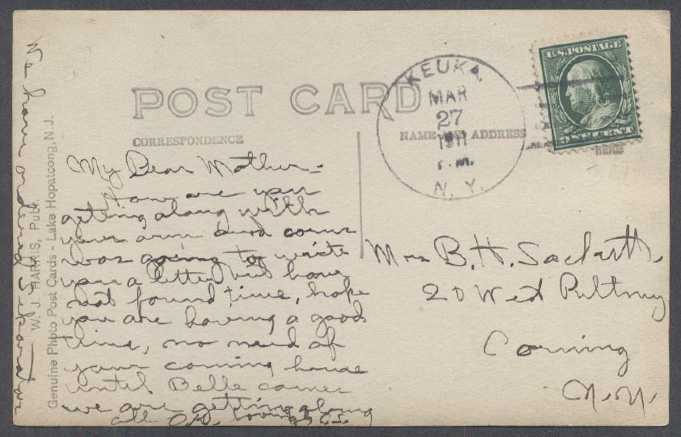 POST CARD
CORRESPONDENCE
NAME AND ADDRESS
KEUKA
MAR
27
1911
P.M.
N. Y.
U.S. POSTAGE
W. J. HARRIS, Publ.
Genuine Photo Post Cards - Lake Hopatcong, N. J.
My Dear Mother -
How are you
getting along with
your arm and corns
was going to write
you a letter but have
not found time, hope
you are having a good
time, no need of
your coming home
until Belle comes
we are getting along
all O.K.
Mrs B. H.
20 West Pultney
Corning
N.Y.